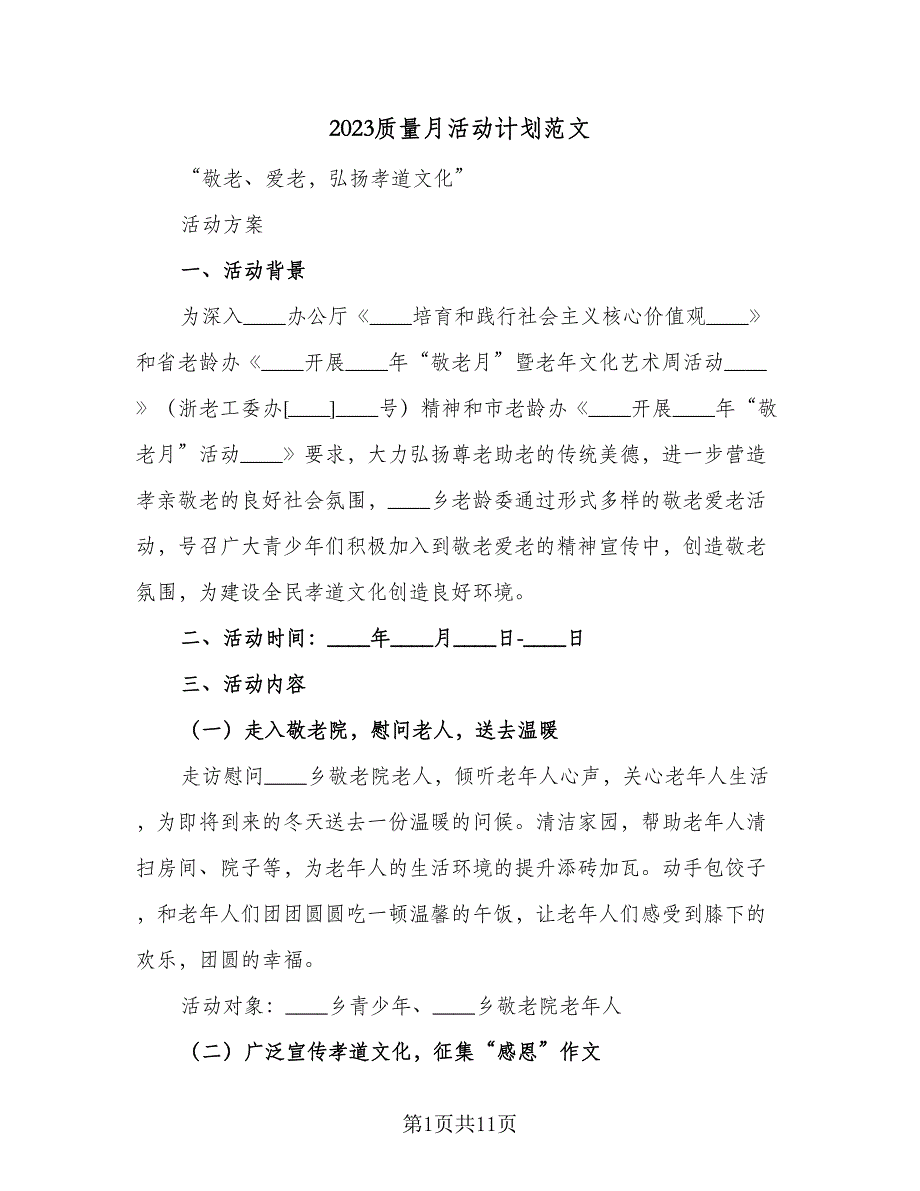 2023质量月活动计划范文
“敬老、爱老，弘扬孝道文化”
活动方案
一、活动背景
为深入____办公厅《____培育和践行社会主义核心价值观____》
和省老龄办《____开展____年“敬老月”暨老年文化艺术周活动____
》（浙老工委办[____]____号）精神和市老龄办《____开展____年“敬
老月”活动____》要求，大力弘扬尊老助老的传统美德，进一步营造
孝亲敬老的良好社会氛围，____乡老龄委通过形式多样的敬老爱老活
动，号召广大青少年们积极加入到敬老爱老的精神宣传中，创造敬老
氛围，为建设全民孝道文化创造良好环境。
二、活动时间：____年____月____日-____日
三、活动内容
（一）走入敬老院，慰问老人，送去温暖
走访慰问____乡敬老院老人，倾听老年人心声，关心老年人生活
，为即将到来的冬天送去一份温暖的问候。清洁家园，帮助老年人清
扫房间、院子等，为老年人的生活环境的提升添砖加瓦。动手包饺子
，和老年人们团团圆圆吃一顿温馨的午饭，让老年人们感受到膝下的
欢乐，团圆的幸福。
活动对象：____乡青少年、____乡敬老院老年人
（二）广泛宣传孝道文化，征集“感恩”作文
第1页共11页